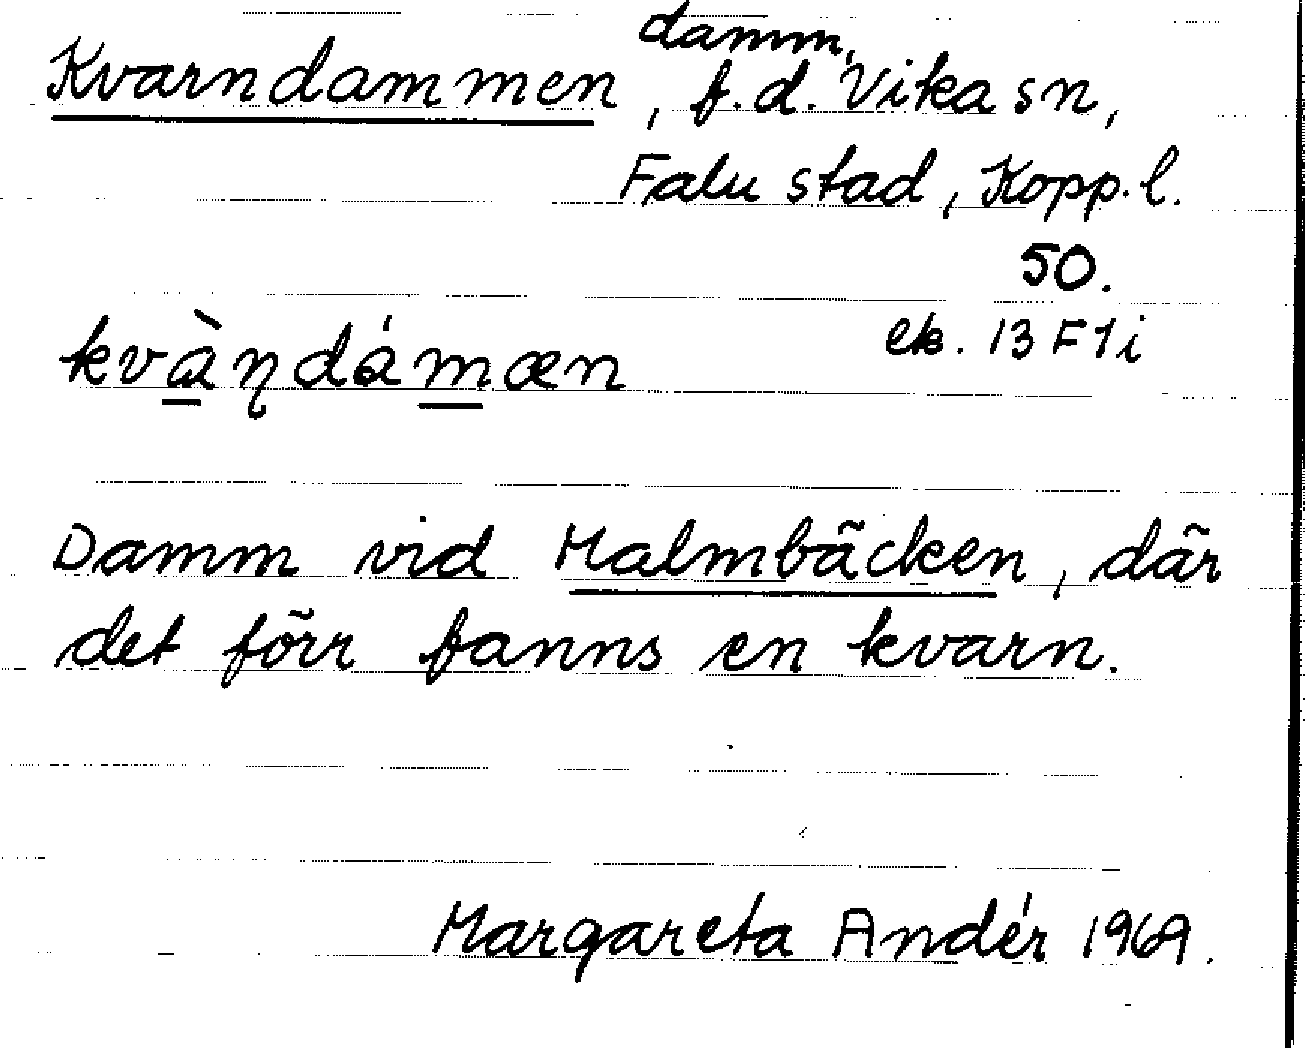 Kvarndammen, damm, f.d. Vika sn,
Falu stad, Kopp. l.
50.
kvàɳdámæn
ek. 13 F 1 i
Damm vid Malmbäcken, där
det förr fanns en kvarn.
Margareta Andér 1969.